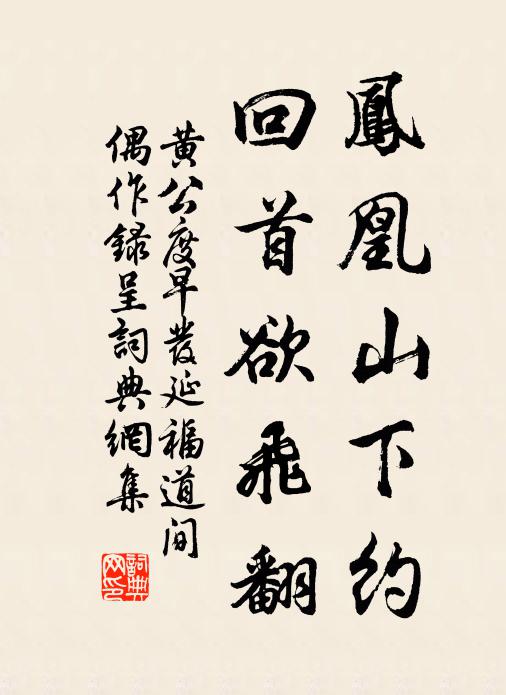 鳳凰山下約
回首欲飛翻
黄公度早發延福道间
偶作録呈詞典網集
詞典网印